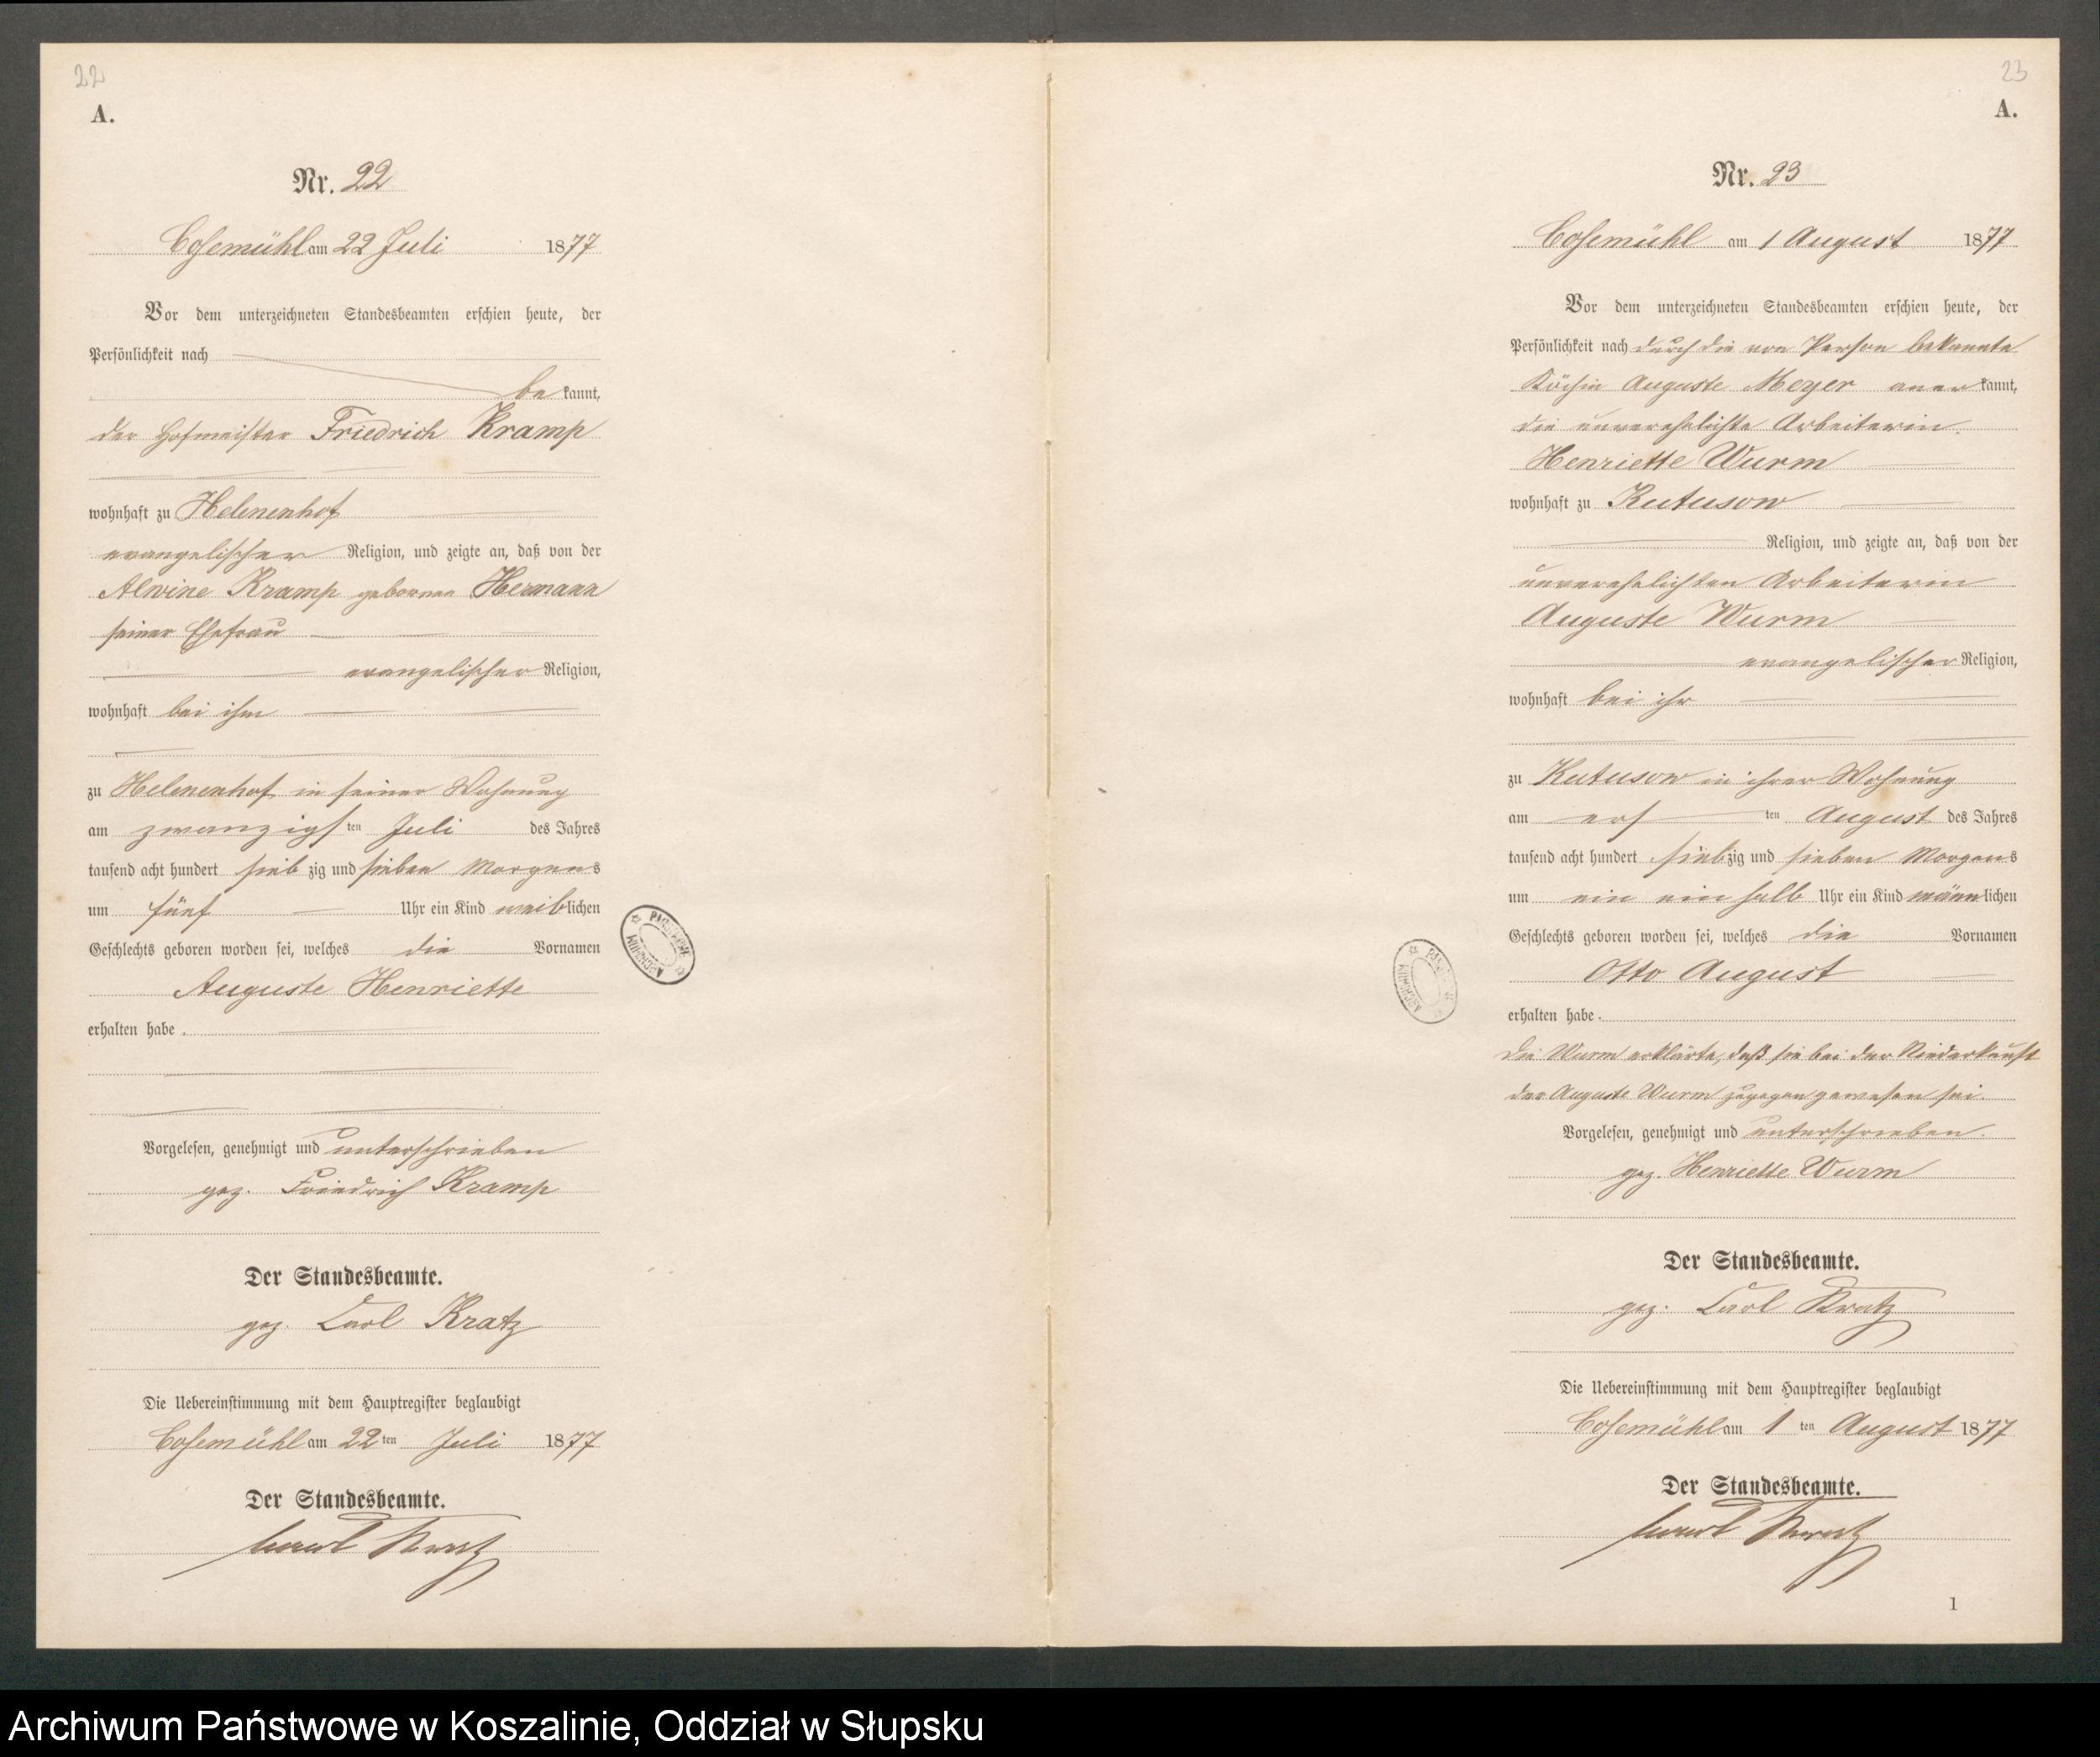 22
A.
Nr. 22
Cosemühl am 22 Juli 1877
Vor dem unterzeichneten Standesbeamten erschien heute, der
Persönlichkeit nach
be kannt,
der Hofmeister Friedrich Kramp
wohnhaft zu Helenenhof
evangelischer Religion, und zeigte an, daß von der
Alwine Kramp geborenen Hermann
seiner Ehefrau
evangelischer Religion,
wohnhaft bei ihm
zu Helenenhof in seiner Wohnung
am zwanzigs ten Juli des Jahres
tausend acht hundert sieb zig und sieben Morgens
um fünf Uhr ein Kind weiblichen
Geschlechts geboren worden sei, welches die Vornamen
Auguste Henriette
erhalten habe.
Vorgelesen, genehmigt und unterschrieben
gez. Friedrich Kramp
Der Standesbeamte.
gez. Carl Kratz
Die Uebereinstimmung mit dem Hauptregister beglaubigt
Cosemühl am 22 ten Juli 1877
Der Standesbeamte.
Carl Kratz
ARCHIWUM PAŃSTWOWE
23
A.
Nr. 23
Cosemühl am 1 August 1877
Vor dem unterzeichneten Standesbeamten erschien heute, der
Persönlichkeit nach durch die von Person bekannte
Köchin Auguste Meyer aner kannt,
die unverehelichte Arbeiterin
Henriette Wurm
wohnhaft zu Kutusow
Religion, und zeigte an, daß von der
unverehelichten Arbeiterin
Auguste Wurm
evangelischer Religion,
wohnhaft bei ihr
zu Kutusow in ihrer Wohnung
am ers ten August des Jahres
tausend acht hundert siebzig und sieben Morgens
um ein ein halb Uhr ein Kind männlichen
Geschlechts geboren worden sei, welches die Vornamen
Otto August
erhalten habe.
Die Wurm erklärte, daß sie bei der Niederkunft
der Auguste Wurm zugegen gewesen sei.
Vorgelesen, genehmigt und unterschrieben.
gez. Henriette Wurm
Der Standesbeamte.
gez. Carl Kratz
Die Uebereinstimmung mit dem Hauptregister beglaubigt
Cosemühl am 1 ten August 1877
Der Standesbeamte.
Carl Kratz
1
ARCHIWUM PAŃSTWOWE
Archiwum Państwowe w Koszalinie, Oddział w Słupsku